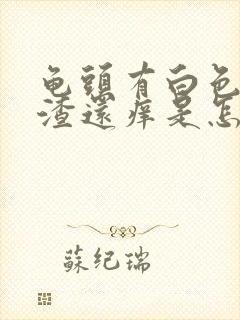 龟頭有白色
渣還痒是怎
蘇纪瑞